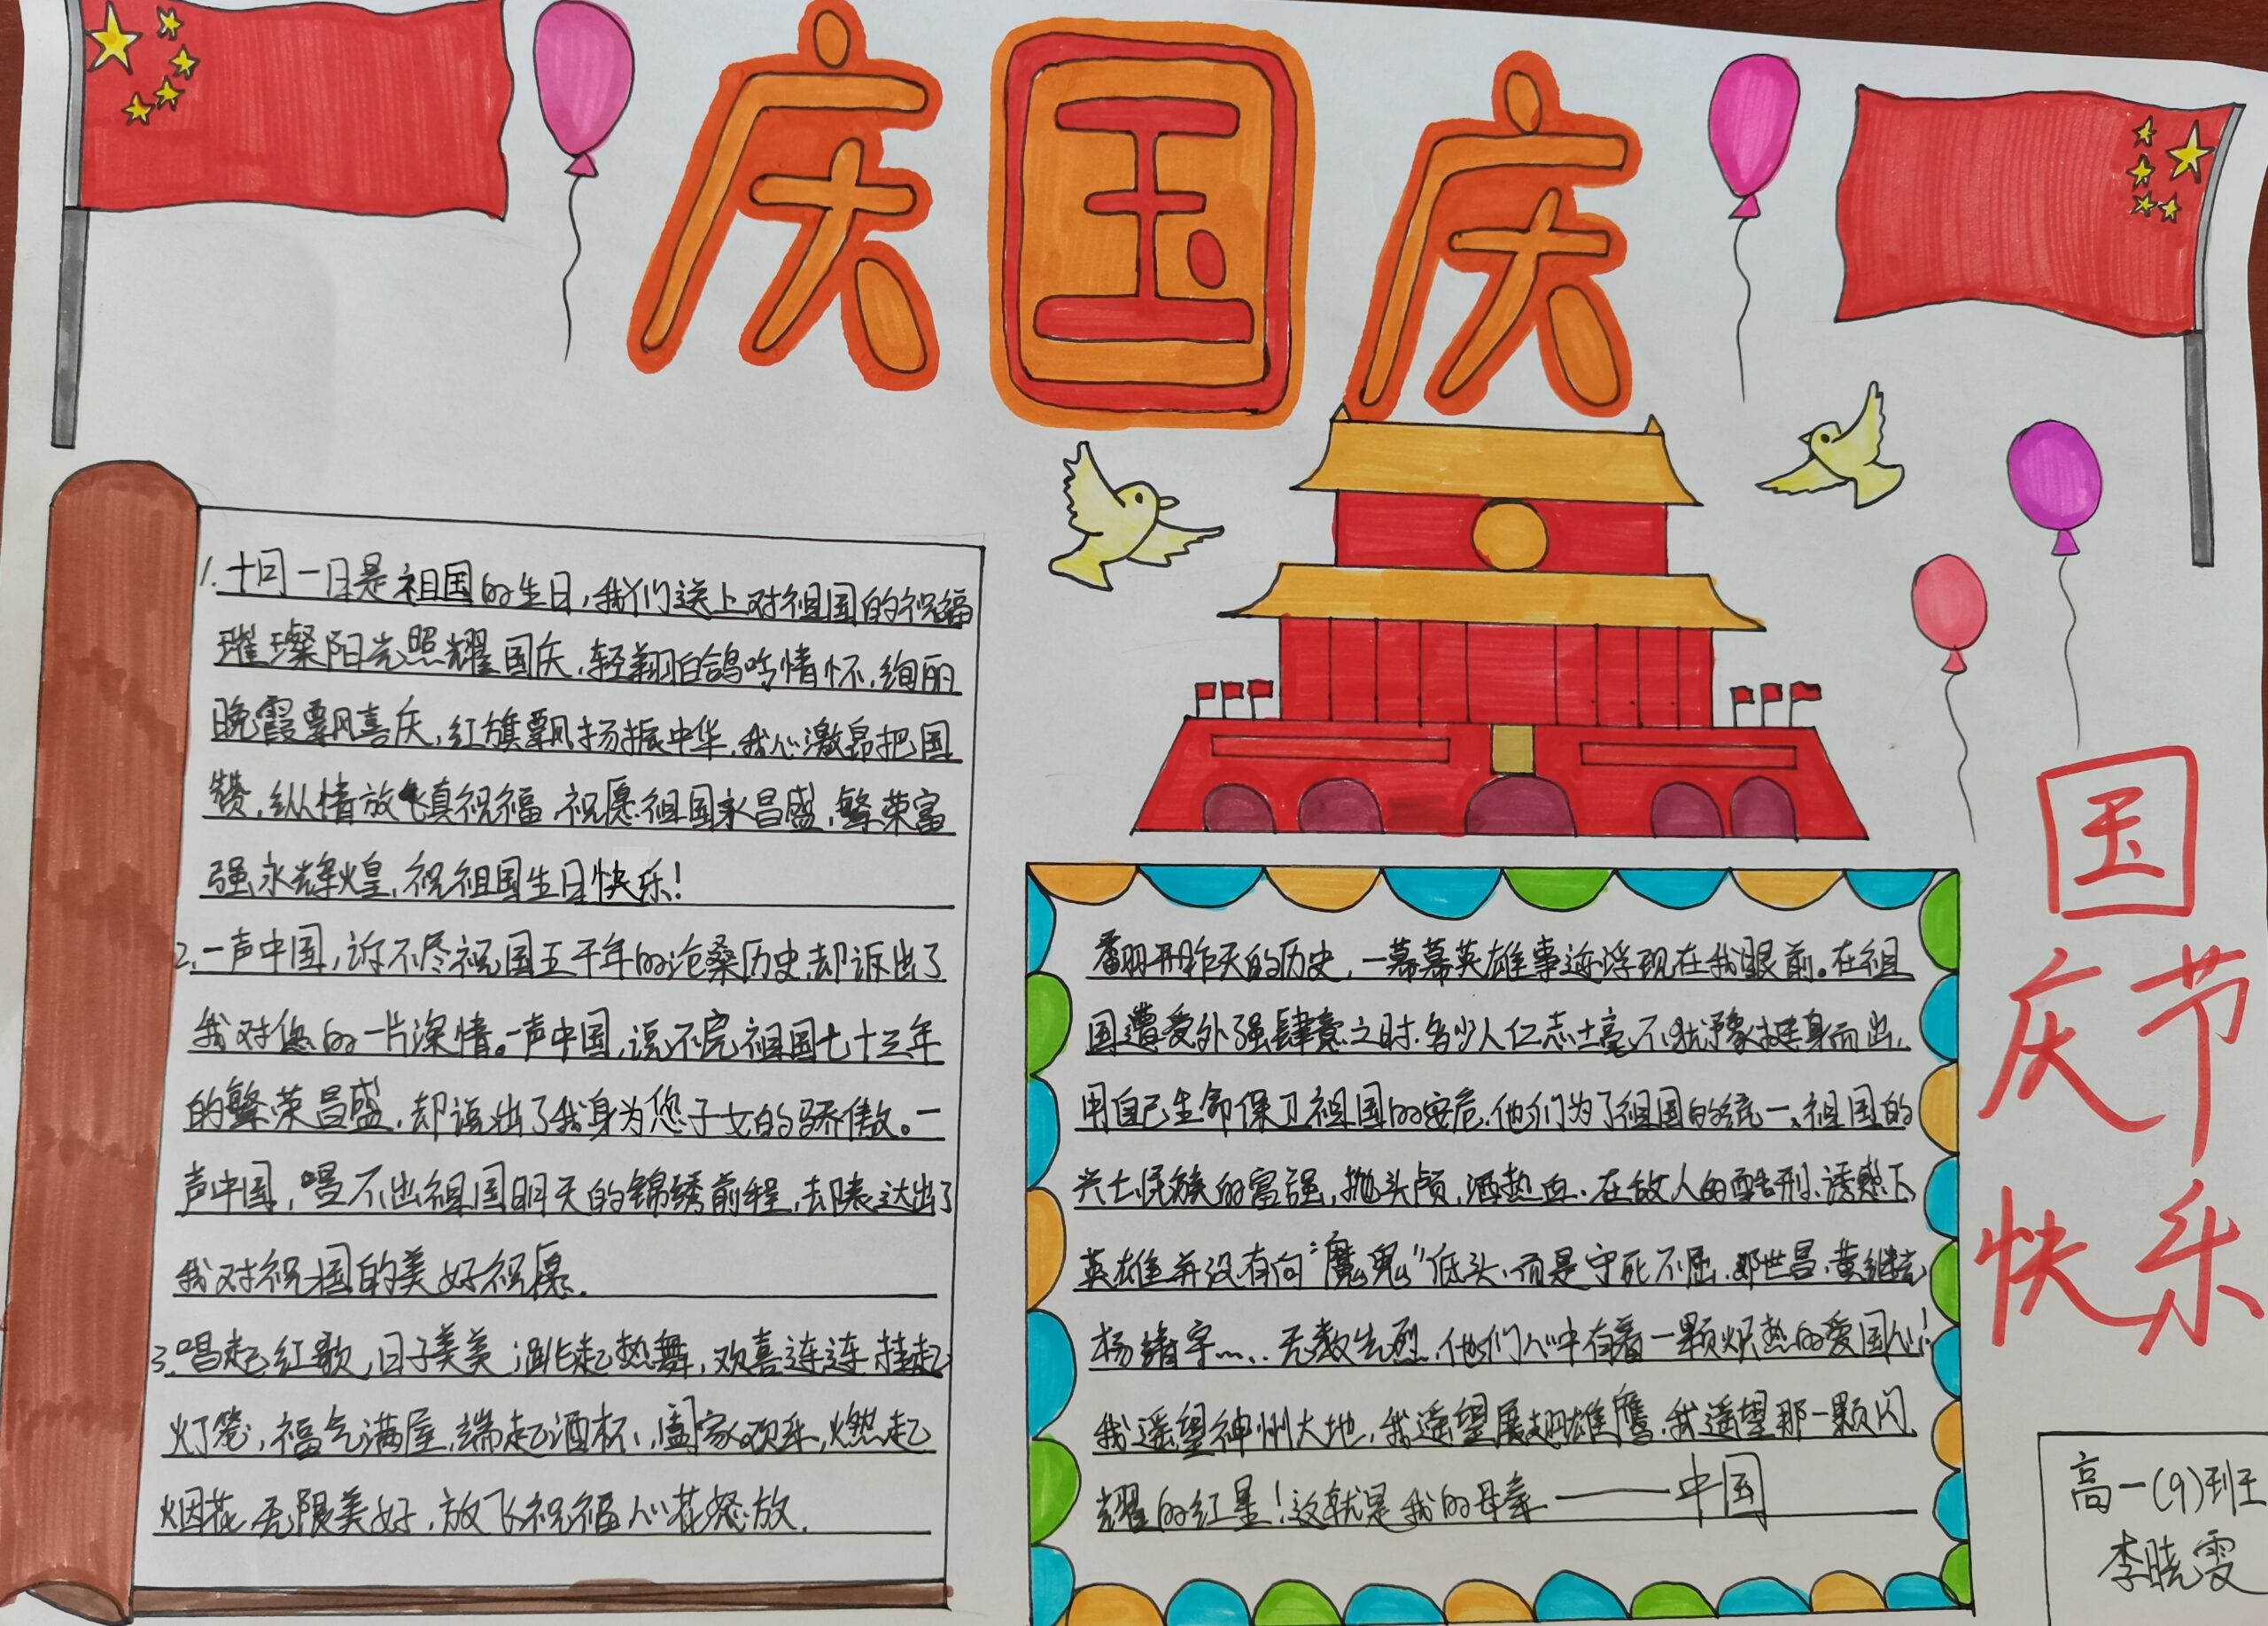 庆国庆
1.十月一日是祖国的生日,我们送上对祖国的祝福
璀璨阳光照耀国庆,轻翔白鸽吟情怀,绚丽
晚霞飘喜庆,红旗飘扬振中华,我心激昂把国
赞,纵情放飞真祝福,祝愿祖国永昌盛,繁荣富
强永辉煌,祝祖国生日快乐!
2.一声中国,诉不尽祝国五千年的沧桑历史,却诉出了
我对您的一片深情。一声中国,说不完祖国七十三年
的繁荣昌盛,却说出了我身为您子女的骄傲。一
声中国,唱不出祖国明天的锦绣前程,却表达出了
我对祝国的美好祝愿.
3.唱起红歌,日子美美;跳起热舞,欢喜连连,挂起
灯笼,福气满屋,端起酒杯,阖家欢乐,燃起
烟花,无限美好,放飞祝福心花怒放.
翻开昨天的历史,一幕幕英雄事迹浮现在我眼前。在祖
国遭受外强肆意之时,多少人仁志士毫不犹豫挺身而出,
用自己生命保卫祖国的安危,他们为了祖国的统一、祖国的
兴士民族的富强,抛头颅,洒热血.在敌人的酷刑、诱惑下
英雄并没有向“魔鬼”低头,而是宁死不屈.邓世昌,黄继光
杨靖宇……无数先烈,他们心中有着一颗炽热的爱国心!
我遥望神州大地,我遥望展翅雄鹰,我遥望那一颗闪
耀的红星!这就是我的母亲——中国
国
庆节
快乐
高一(9)班
李晓雯